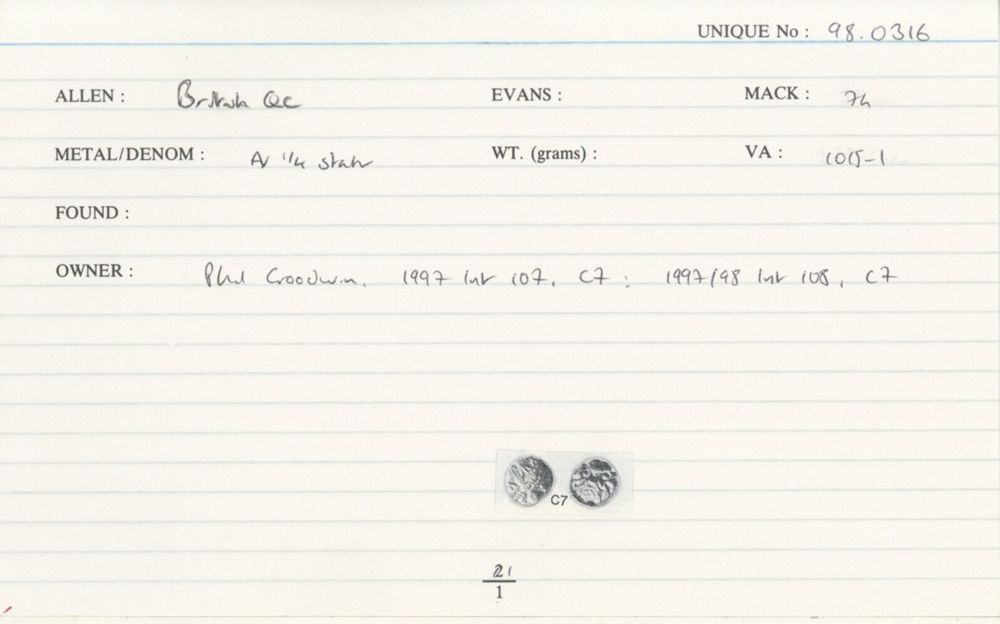 UNIQUE No : 98.0316
ALLEN : British QC EVANS : MACK : 74
METAL/DENOM : AV 1/4 stater WT. (grams) : VA : 1015-1
FOUND :
OWNER : Phil Goodwin. 1997 Int 107, C7 ; 1997/98 Int 108, C7
C7
21
1